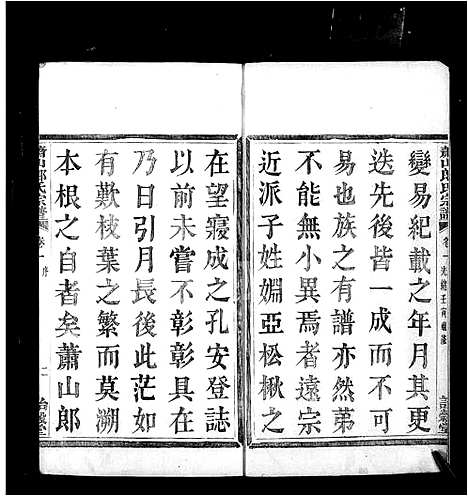 蕭山郎氏宗譜 卷一
變易紀載之年月其更
迭先後皆一成而不可
易也族之有譜亦然第
不能無小異焉者遠宗
近派子姓姻亞松楸之
在望寢成之孔安登誌
以前未嘗不彰彰具在
乃日引月長後此茫如
有歎枝葉之繁而莫溯
本根之自者矣蕭山郎
蕭山郎氏宗譜 卷一 序